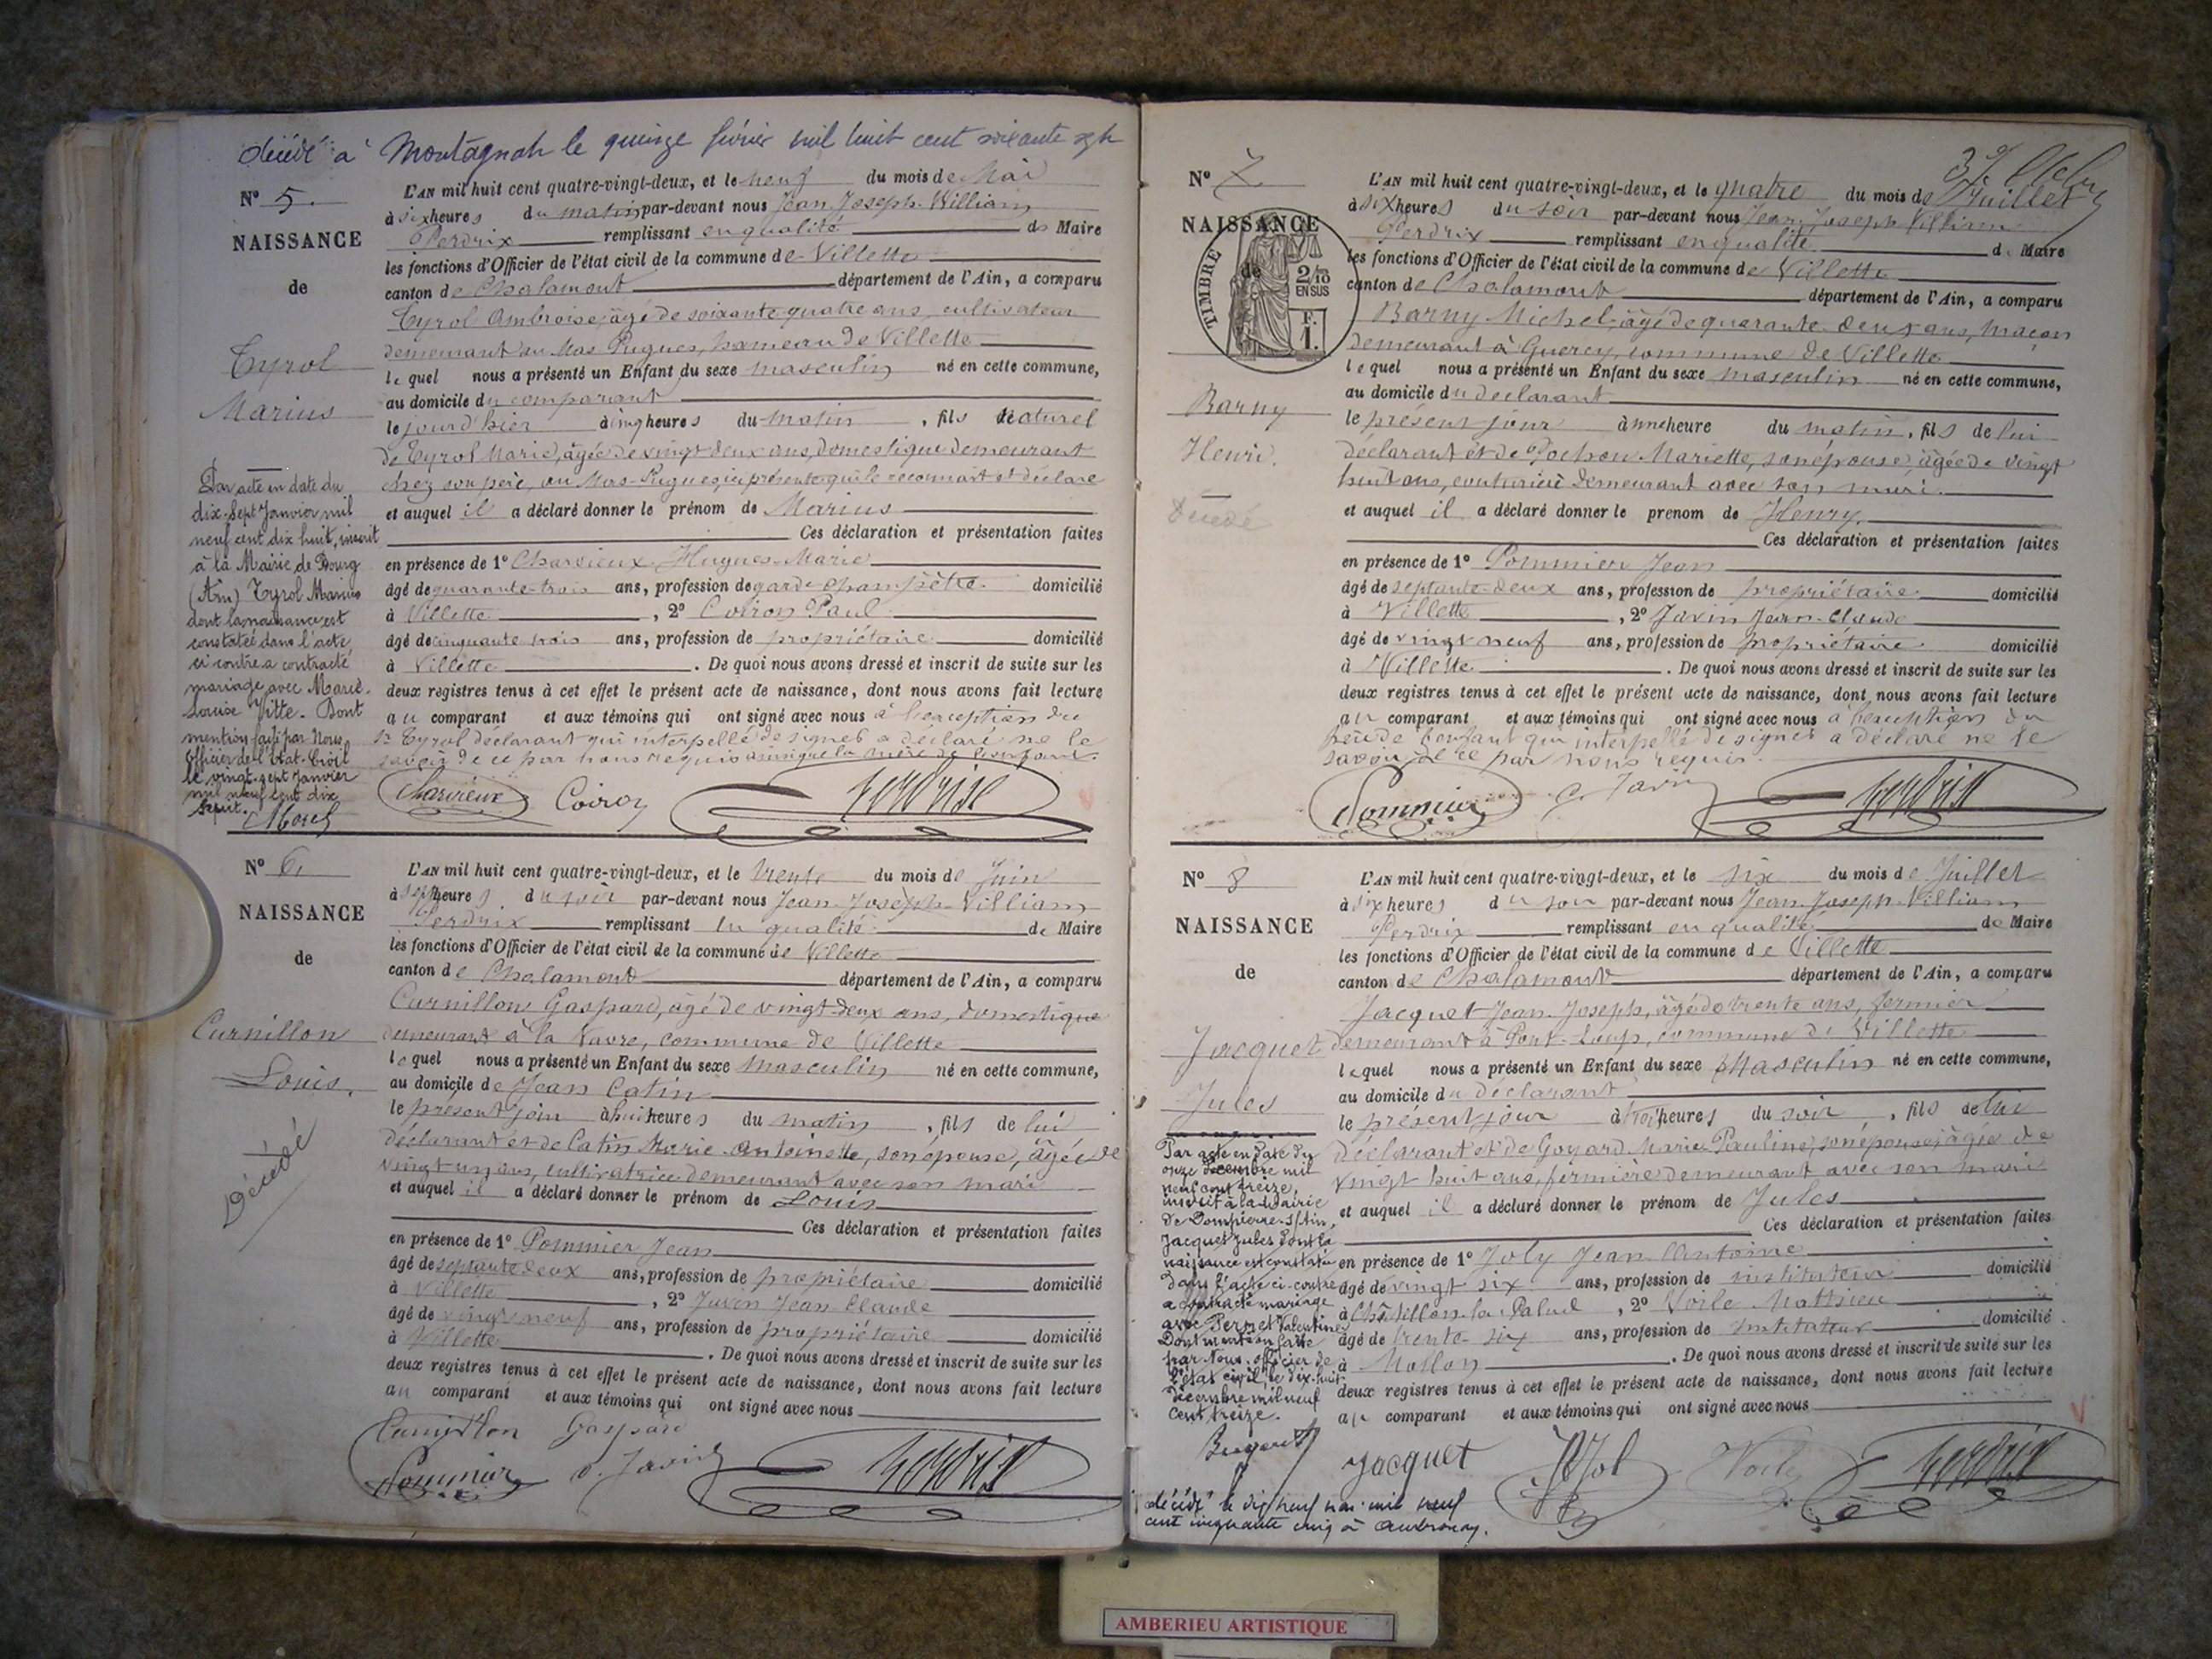 décédé à Montagnat le quinze février mil huit cent soixante sept
N° 5.
NAISSANCE
de
Tyrol
Marius
Par acte en date du
dix-sept Janvier mil
neuf cent dix huit, inscrit
à la Mairie de Bourg
(Ain) Tyrol Marius
dont la naissance est
constatée dans l'acte
ci contre a contracté
mariage avec Marie
Louise Vitte. Dont
mention faite par Nous
Officier de l'Etat-Civil
le vingt-sept Janvier
mil neuf cent dix
huit.
L'AN mil huit cent quatre-vingt-deux, et le neuf du mois de Mai
à six heures du matin par-devant nous Jean Joseph William
Perdrix remplissant en qualité de Maire
les fonctions d'Officier de l'état civil de la commune de Villette
canton de Chalamont département de l'Ain, a comparu
Tyrol Ambroise, âgé de soixante quatre ans, cultivateur
demeurant au Mas Pugues, hameau de Villette
lequel nous a présenté un Enfant du sexe masculin né en cette commune,
au domicile du comparant
le jour d'hier à cinq heures du matin, fils naturel
de Tyrol Marie, âgée de vingt deux ans, domestique demeurant
chez son père, au Mas-Pugues, ici présente qui le reconnait et déclare
et auquel il a déclaré donner le prénom de Marius
Ces déclaration et présentation faites
en présence de 1° Charvieux Hugues Marie
âgé de quarante-trois ans, profession de garde champêtre domicilié
à Villette, 2° Coiron Paul
âgé de cinquante trois ans, profession de propriétaire domicilié
à Villette. De quoi nous avons dressé et inscrit de suite sur les
deux registres tenus à cet effet le présent acte de naissance, dont nous avons fait lecture
au comparant et aux témoins qui ont signé avec nous à l'exception du
Sr Tyrol déclarant qui interpellé de signer a déclaré ne le
savoir de ce par nous requis ainsi que la mère de l'enfant.
Charvieux Coiron Perdrix
N° 6.
NAISSANCE
de
Curnillon
Louis.
Décédé
L'AN mil huit cent quatre-vingt-deux, et le trente du mois de Juin
à sept heures du soir par-devant nous Jean Joseph William
Perdrix remplissant en qualité de Maire
les fonctions d'Officier de l'état civil de la commune de Villette
canton de Chalamont département de l'Ain, a comparu
Curnillon Gaspard, âgé de vingt-deux ans, domestique
demeurant à la Navre, commune de Villette
lequel nous a présenté un Enfant du sexe masculin né en cette commune,
au domicile de Jean Catin
le présent jour à huit heures du matin, fils de lui
déclarant et de Catin Marie Antoinette, son épouse, âgée de
vingt un ans, cultivatrice demeurant avec son mari
et auquel il a déclaré donner le prénom de Louis
Ces déclaration et présentation faites
en présence de 1° Pommier Jean
âgé de septante deux ans, profession de propriétaire domicilié
à Villette, 2° Javin Jean Claude
âgé de vingt neuf ans, profession de propriétaire domicilié
à Villette. De quoi nous avons dressé et inscrit de suite sur les
deux registres tenus à cet effet le présent acte de naissance, dont nous avons fait lecture
au comparant et aux témoins qui ont signé avec nous
Curnillon Gaspard
Pommier C. Javin Perdrix
N° 7.
NAISSANCE
de
TIMBRE
2/10
EN SUS
F.
1.
Barny
Henri.
Décédé
L'AN mil huit cent quatre-vingt-deux, et le quatre du mois de Juillet
à six heures du soir par-devant nous Jean Joseph William
Perdrix remplissant en qualité de Maire
les fonctions d'Officier de l'état civil de la commune de Villette
canton de Chalamont département de l'Ain, a comparu
Barny Michel âgé de quarante deux ans, maçon
demeurant à Guercy, commune de Villette
lequel nous a présenté un Enfant du sexe masculin né en cette commune,
au domicile du déclarant
le présent jour à une heure du matin, fils de lui
déclarant et de Pochon Mariette, son épouse, âgée de vingt
huit ans, couturière demeurant avec son mari.
et auquel il a déclaré donner le prenom de Henry.
Ces déclaration et présentation faites
en présence de 1° Pommier Jean
âgé de septante-deux ans, profession de propriétaire domicilié
à Villette, 2° Javin Jean-Claude
âgé de vingt neuf ans, profession de propriétaire domicilié
à Villette. De quoi nous avons dressé et inscrit de suite sur les
deux registres tenus à cet effet le présent acte de naissance, dont nous avons fait lecture
au comparant et aux témoins qui ont signé avec nous à l'exception du
père de l'enfant qui interpellé de signer a déclaré ne le
savoir de ce par nous requis.
Pommier C. Javin Perdrix
N° 8
NAISSANCE
de
Jacquet
Jules
Par acte en date du
onze décembre mil
neuf cent treize,
inscrit à la Mairie
de Dompierre s/Ain,
Jacquet Jules dont la
naissance est constatée
dans l'acte ci-contre
a contracté mariage
avec Pernet Valentine
Dont mention faite
par Nous officier de
l'état civil, le dix-huit
décembre mil neuf
cent treize.
L'AN mil huit cent quatre-vingt-deux, et le six du mois de Juillet
à six heures du soir par-devant nous Jean Joseph William
Perdrix remplissant en qualité de Maire
les fonctions d'Officier de l'état civil de la commune de Villette
canton de Chalamont département de l'Ain, a comparu
Jacquet Jean Joseph, âgé de trente ans, fermier
demeurant à Pont-Loup, commune de Villette
lequel nous a présenté un Enfant du sexe Masculin né en cette commune,
au domicile du déclarant
le présent jour à trois heures du soir, fils de lui
déclarant et de Goyard Marie Pauline, son épouse, âgée de
vingt huit ans, fermière demeurant avec son mari
et auquel il a déclaré donner le prénom de Jules
Ces déclaration et présentation faites
en présence de 1° Joly Jean Antoine
âgé de vingt six ans, profession de instituteur domicilié
à Châtillon la Palud, 2° Voile Mathieu
âgé de trente six ans, profession de instituteur domicilié
à Mollon. De quoi nous avons dressé et inscrit de suite sur les
deux registres tenus à cet effet le présent acte de naissance, dont nous avons fait lecture
au comparant et aux témoins qui ont signé avec nous
Jacquet Voile Perdrix
décédé le dix neuf mai mil neuf
cent cinquante cinq à Ambronay.
AMBERIEU ARTISTIQUE